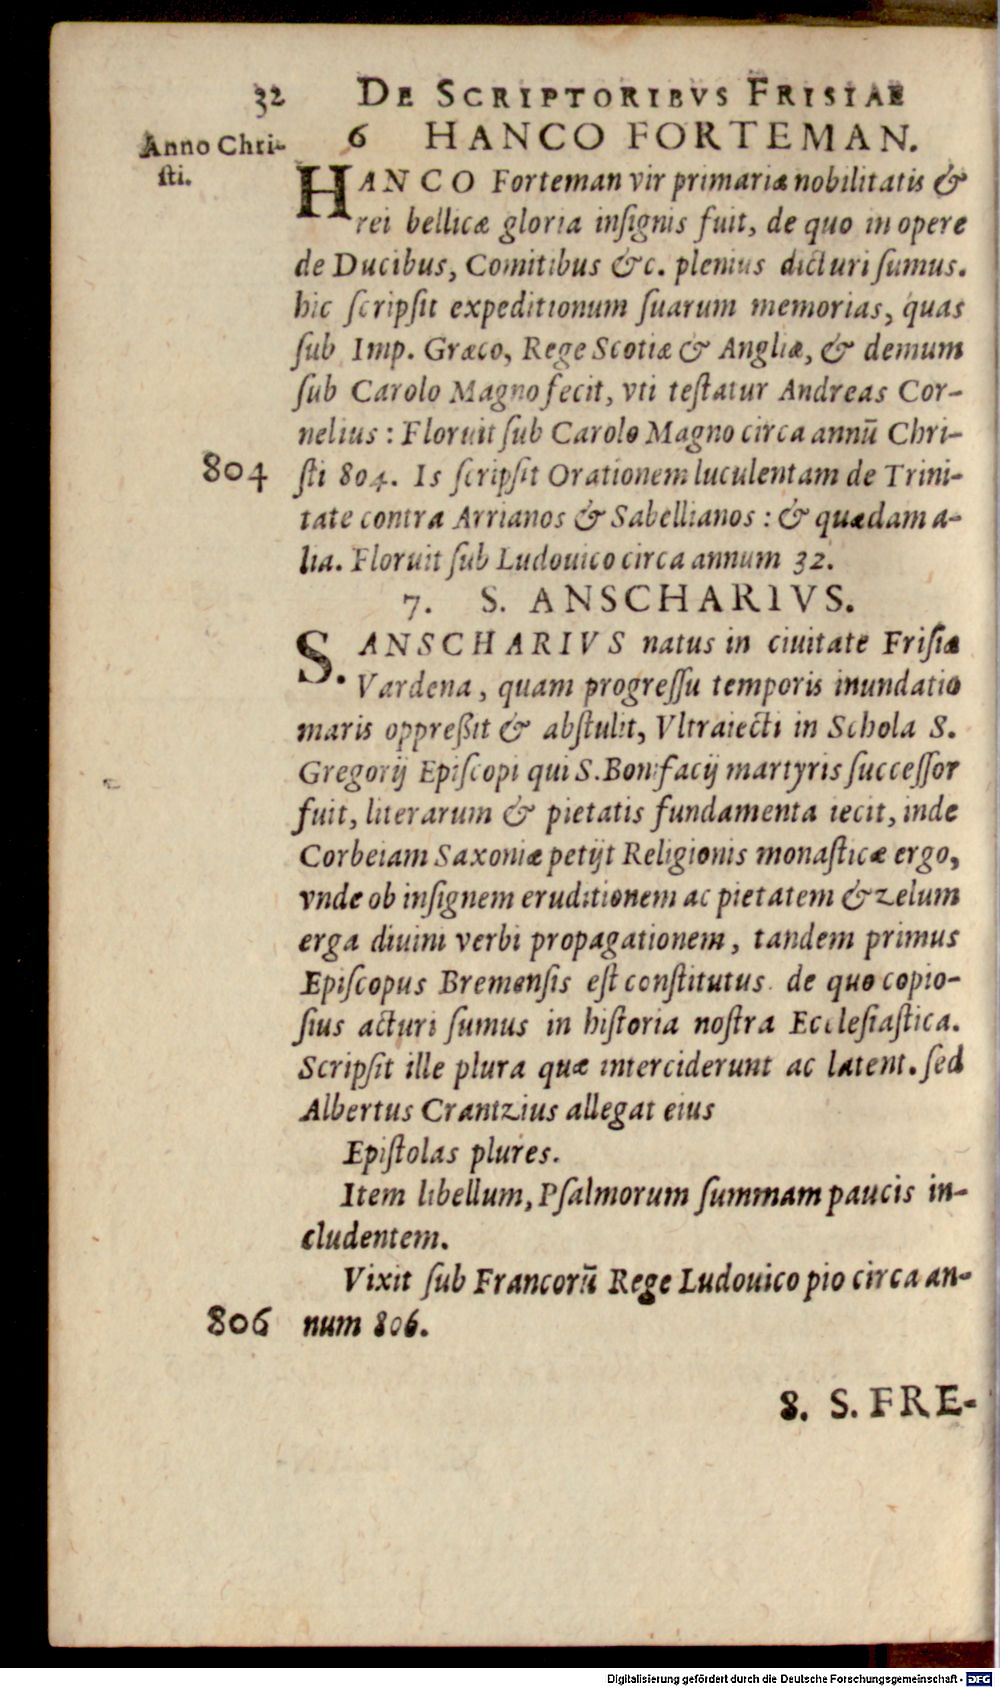 32 DE SCRIPTORIBVS FRISIAE
Anno Chri-
sti.
6 HANCO FORTEMAN.
HANCO Forteman vir primariæ nobilitatis &
rei bellicæ gloria inſignis fuit, de quo in opere
de Ducibus, Comitibus &c. plenius dicturi ſumus.
hic ſcripſit expeditionum ſuarum memorias, quas
ſub Imp. Græco, Rege Scotiæ & Angliæ, & demum
ſub Carolo Magno fecit, vti teſtatur Andreas Cor-
nelius : Floruit ſub Carolo Magno circa annū Chri-
804 ſti 804. Is ſcripſit Orationem luculentam de Trini-
tate contra Arrianos & Sabellianos : & quædam a-
lia. Floruit ſub Ludouico circa annum 32.
7. S. ANSCHARIVS.
S. ANSCHARIVS natus in ciuitate Friſiæ
Vardena, quam progreſſu temporis inundatio
maris oppreßit & abſtulit, Vltraiecti in Schola S.
Gregorij Epiſcopi qui S. Bonifacij martyris ſucceſſor
fuit, literarum & pietatis fundamenta iecit, inde
Corbeiam Saxoniæ petijt Religionis monaſticæ ergo,
vnde ob inſignem eruditionem ac pietatem & zelum
erga diuini verbi propagationem, tandem primus
Epiſcopus Bremenſis eſt conſtitutus. de quo copio-
ſius acturi ſumus in hiſtoria noſtra Eccleſiaſtica.
Scripſit ille plura quæ interciderunt ac latent. ſed
Albertus Crantzius allegat eius
Epiſtolas plures.
Item libellum, Pſalmorum ſummam paucis in-
cludentem.
Vixit ſub Francorū Rege Ludouico pio circa an-
806 num 806.
8. S. FRE-
Digitalisierung gefördert durch die Deutsche Forschungsgemeinschaft - DFG